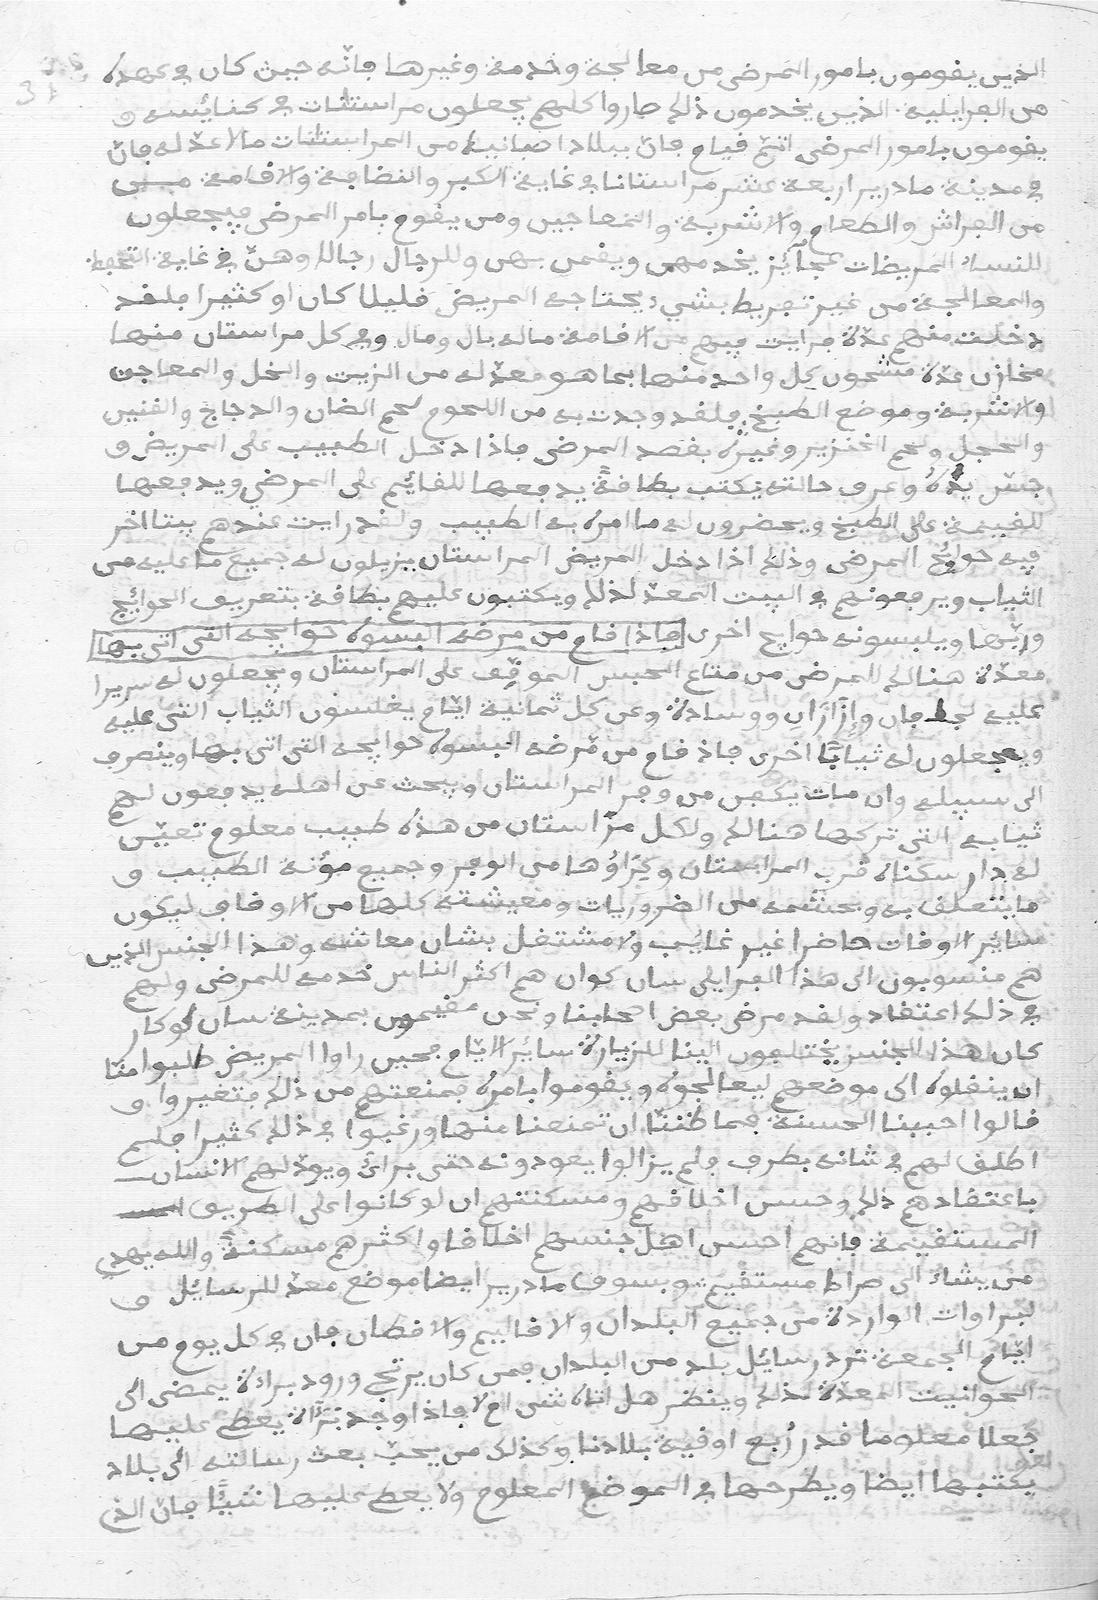 الذين يقومون بامور المرضى من معالجة وخدمة وغيرها فانّه حيث كان في عهدة
من الفرايلية الذين يخدمون ذلك صاروا كلهم يجعلون مراستانات في كنائسه و
يقومون بامور المرضى اتمّ قيام فانّ ببلاد اصبانيا من المراستانات مالا عدّ له فانّ
في مدينة مادرير اربعة عشر مراستانا في غاية الكبر والنضافة والاقامة
من الفراش والطعام والاشربة والمعاجين ومن يقوم بامر المرضى فيجعلون
للنساء المريضات عجآئز يخدمهن ويقمن بهن وللرجال رجالا وهنّ في غاية التحفظ
والمعالجة من غير تفريط بشيء يحتاجه المريض قليلا كان او كثيرا فلقد
دخلت منهم عدّة فرايت فيهم من الاقامة ماله بال ومال وفي كل مراستان منها
مخازن عدّة مشحون كل واحد منها بما هو معدّ له من الزيت والخل والمعاجن
والاشربة وموضع الطبخ فلقد وجدت به من اللحوم لحم الضان والدجاج والقنين
والحجل ولحم الخنزير وغيره بقصد المرضى فاذا دخل الطبيب على المريض و
جسّ يده وعرف حالته يكتب بطاقةً يدفعها للقائم على المرضى ويدفعها
للقيمة على الطبخ ويحضرون له ما امره به الطبيب ولقد رايت عندهم بيتا اخر
فيه حوائج المرضى وذلك اذا دخل المريض المراستان يزيلون له جميع ما عليه من
الثياب ويرفعونهم في البيت المعدّ لذلك ويكتبون عليهم بطاقة بتعريف الحوائج
وربّها ويلبسونه حوايج اخرى فاذا قام من مرضه البسوه حوايجه التي اتى بها
معدّة هنالك للمرضى من متاع الحبس الموقّف على المراستان ويجعلون له سريرا
عليه لجافان وإزاران ووسادة وعن كل ثمانية ايّام يغلسون الثياب التي عليه
ويجعلون له ثيابًا اخرى فاذ قام من مرضه البسوه حوايجه التي اتى بها وينصرف
الى سبيله وان مات يكفن من وفر المراستان ويبحث عن اهله يدفعون لهم
ثيابه التي تركها هنالك ولكل مراستان من هذه طبيب معلوم تعيّن
له دار سكناه قرب المراستان وكراؤها من الوفر وجميع مؤنة الطبيب و
ما يتعلق به وبحشمه من الضروريات ومعيشته كلها من الاوقاف ليكون
سائر الاوقات حاضرا غير غائب ولا مشتغل بشان معاشه وهذا الجنس الذين
هم منسوبون الى هذا الفرايلي سان كوان هم اكثر الناس خدمه للمرضى ولهم
في ذلك اعتقاد ولقد مرض بعض اصحابنا ونحن مقيمون بمدينة سان لوكار
كان هذا الجنس يختلفون الينا للزيارة سائر الايّام فحين راوا المريض طلبوا منّا
ان ينقلوه الى موضعهم ليعالجوه ويقوموا بامره فمنعتهم من ذلك فتغيروا و
قالوا احببنا الحسنة فما ظننّا ان تمنعنا منها ورغبوا في ذلك كثيرا فلم
اطلق لهم في شانه بطرف ولم يزالوا يعودونه حتى برائ ويودّ لهم الانسان
باعتقادهم ذلك وحسن اخلاقهم ومسكنتهم ان لو كانوا على الطريق
المستقيمة فانهم احسن اهل جنسهم اخلاقا واكثرهم مسكنةً والله يهدي
من يشاء الى صراط مستقيم وبسوق مادرير ايضا موضع معدّ للرسايل و
لبراوات الواردة من جميع البلدان والاقاليم والاقطان فان في كل يوم من
ايّام الجمعة ترد رسائل بلد من البلدان فمن كان يرتجى ورود براءة يمضى الى
الحوانيت المعدّة لذلك وينظر هل اتاه شى ام لا فاذا وجد براءة يعطى عليها
جعلا معلوما قدر ربع اوقية بلادنا وكذلك من يحبّ بعث رسالته الى بلاد
يكتبها ايضا ويطرحها في الموضع المعلوم ولا يعطى عليها شيئًا فانّ الذي